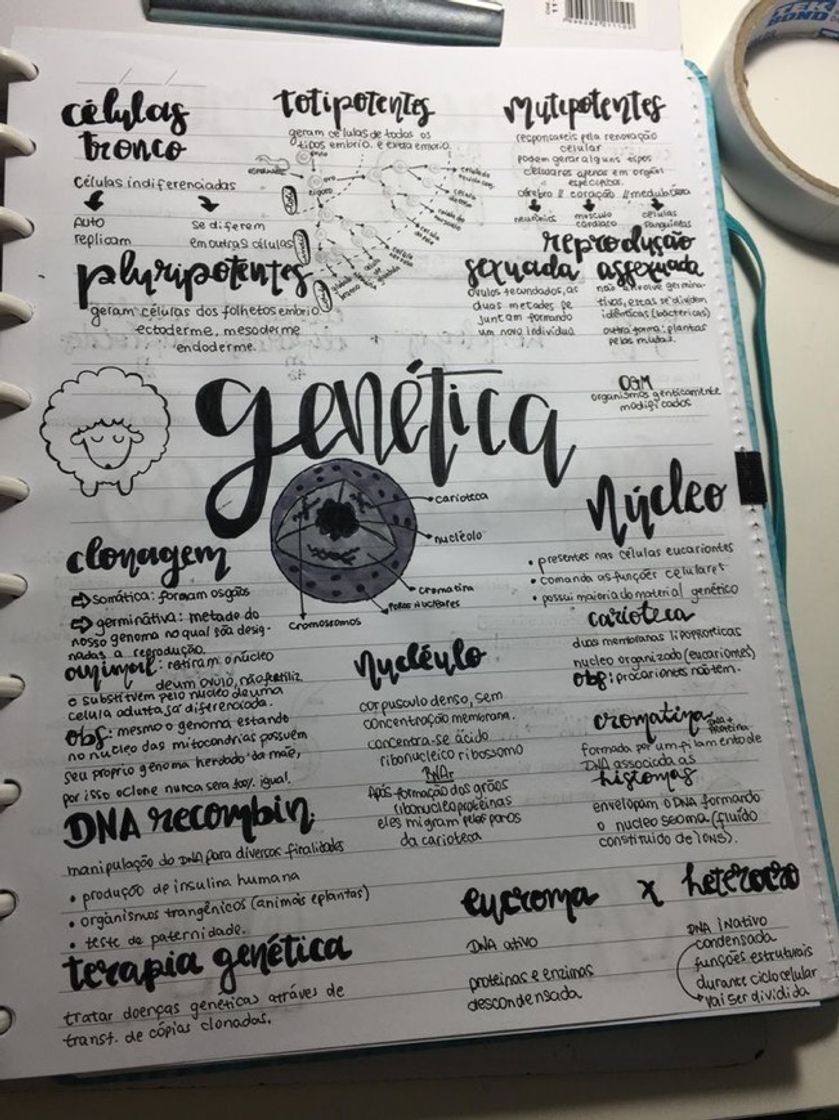 TEK
BOND
células
tronco
células indiferenciadas
AUTO
replicam
se diferem
em outras células
totipotentes
geram células de todos os
tipos embrio. e extra embrio.
ovo
zigoto
Mutipotentes
responsáveis pela renovação
celular
podem gerar alguns tipos
celulares apenas em orgãos
específicos.
cérebro // coração // medula óssea
neurônios
musculo
cárdiaco
células
sanguíneas
pluripotentes
geram células dos folhetos embrio
ectoderme, mesoderme
endoderme.
reprodução
sexuada
óvulos fecundados, as
duas metades se
juntam formando
um novo individuo
assexuada
não envolve germina-
tivas, estas se dividem
idênticas (bactérias)
outra forma: plantas
pelas mudas.
OGM
organismos genticamente
modificados
genética
carioteca
nucléolo
cromatina
poros nucleares
cromossomos
clonagem
somática: formam osgãos
germinátiva: metade do
nosso genoma no qual são desig-
nadas a reprodução.
animal: retiram o núcleo
de um óvulo, não fertiliz.
o substituem pelo núcleo de uma
célula adulta já diferenciada.
obs: mesmo o genoma estando
no núcleo das mitocondrias possuem
seu próprio genoma herdado da mãe,
por isso o clone nunca sera 100% igual.
DNA recombin.
manipulação do DNA para diversas finalidades
• produção de insulina humana
• orgânismos trangênicos (animais e plantas)
• teste de paternidade.
terapia genética
tratar doenças genéticas atráves de
transf. de cópias clonadas.
Nucléulo
corpusculo denso, sem
concentração membrana.
concentra-se ácido
ribonucleico ribossomo
RNAr
Após formação dos grãos
ribonucleoproteinas
eles migram pelos poros
da carioteca
Núcleo
• presentes nas células eucariontes
• comanda as funções celulares
• possui maioria do material genético
carioteca
duas membranas lipoproteicas
nucleo organizado (eucariontes)
obs: procariontes não tem.
cromatina DNA + proteina
formada por um filamento de
DNA associada as
histomas
envelopam o DNA formando
o nucleossoma (fluído
constituido de íons).
eucroma x heterocro
DNA ativo
proteinas e enzimas
descondensada
DNA iNativo
condensada
funções estruturais
durante ciclo celular
vai ser dividida